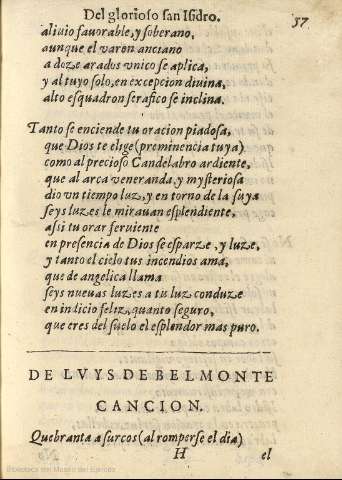 Del glorioso san Isidro. 57
aliuio fauorable, y soberano,
aunque el varon anciano
a doze arados vnico se aplica,
y al tuyo solo, en excepcion diuina,
alto esquadron serafico se inclina.
Tanto se enciende tu oracion piadosa,
que Dios te elige (preminencia tuya)
como al precioso Candelabro ardiente,
que al arca veneranda, y mysteriosa
dio vn tiempo luz, y en torno de la suya
seys luzes le mirauan esplendiente,
assi tu orar feruiente
en presencia de Dios se esparze, y luze,
y tanto el cielo tus incendios ama,
que de angelica llama
seys nueuas luzes a tu luz conduze
en indicio feliz, quanto seguro,
que eres del suelo el esplendor mas puro.
DE LVYS DE BELMONTE
CANCION.
Quebranta a surcos (al romperse el dia)
H el
Biblioteca del Museo del Ejército